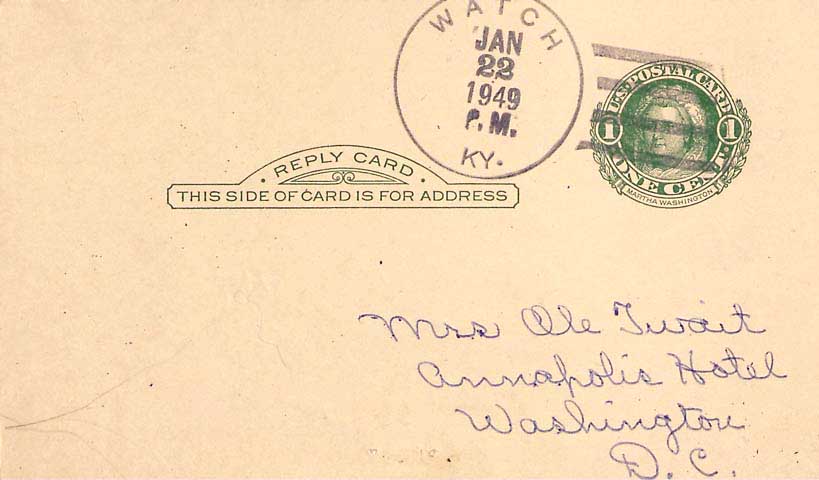 WATCH
JAN
22
1949
P.M.
KY.
U.S. POSTAL CARD
1 1
ONE CENT
MARTHA WASHINGTON
· REPLY CARD ·
THIS SIDE OF CARD IS FOR ADDRESS
Mrs Ole Twait
Annapolis Hotel
Washington
D. C.